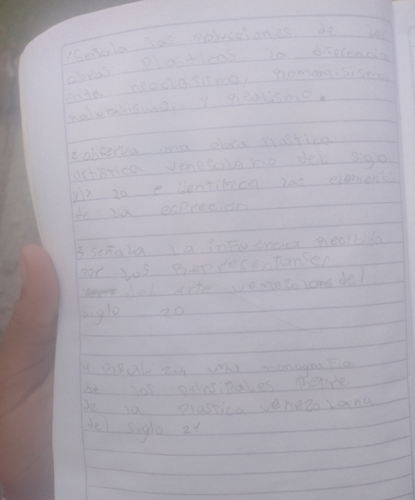 1 Señala las producciones de las
obras plasticas la diferencia
neoclasismo, romanticismo
naturalismo, y realismo.
2 observa una obra plastica
artistica venesolano del siglo
20 e identifica las elementos
de la exprecion
3 señala la influencia recibida
por los Representantes
del arte venezolano del
siglo 20
una monografia
de los prinsipales
de la plastica venezolana
del siglo 21